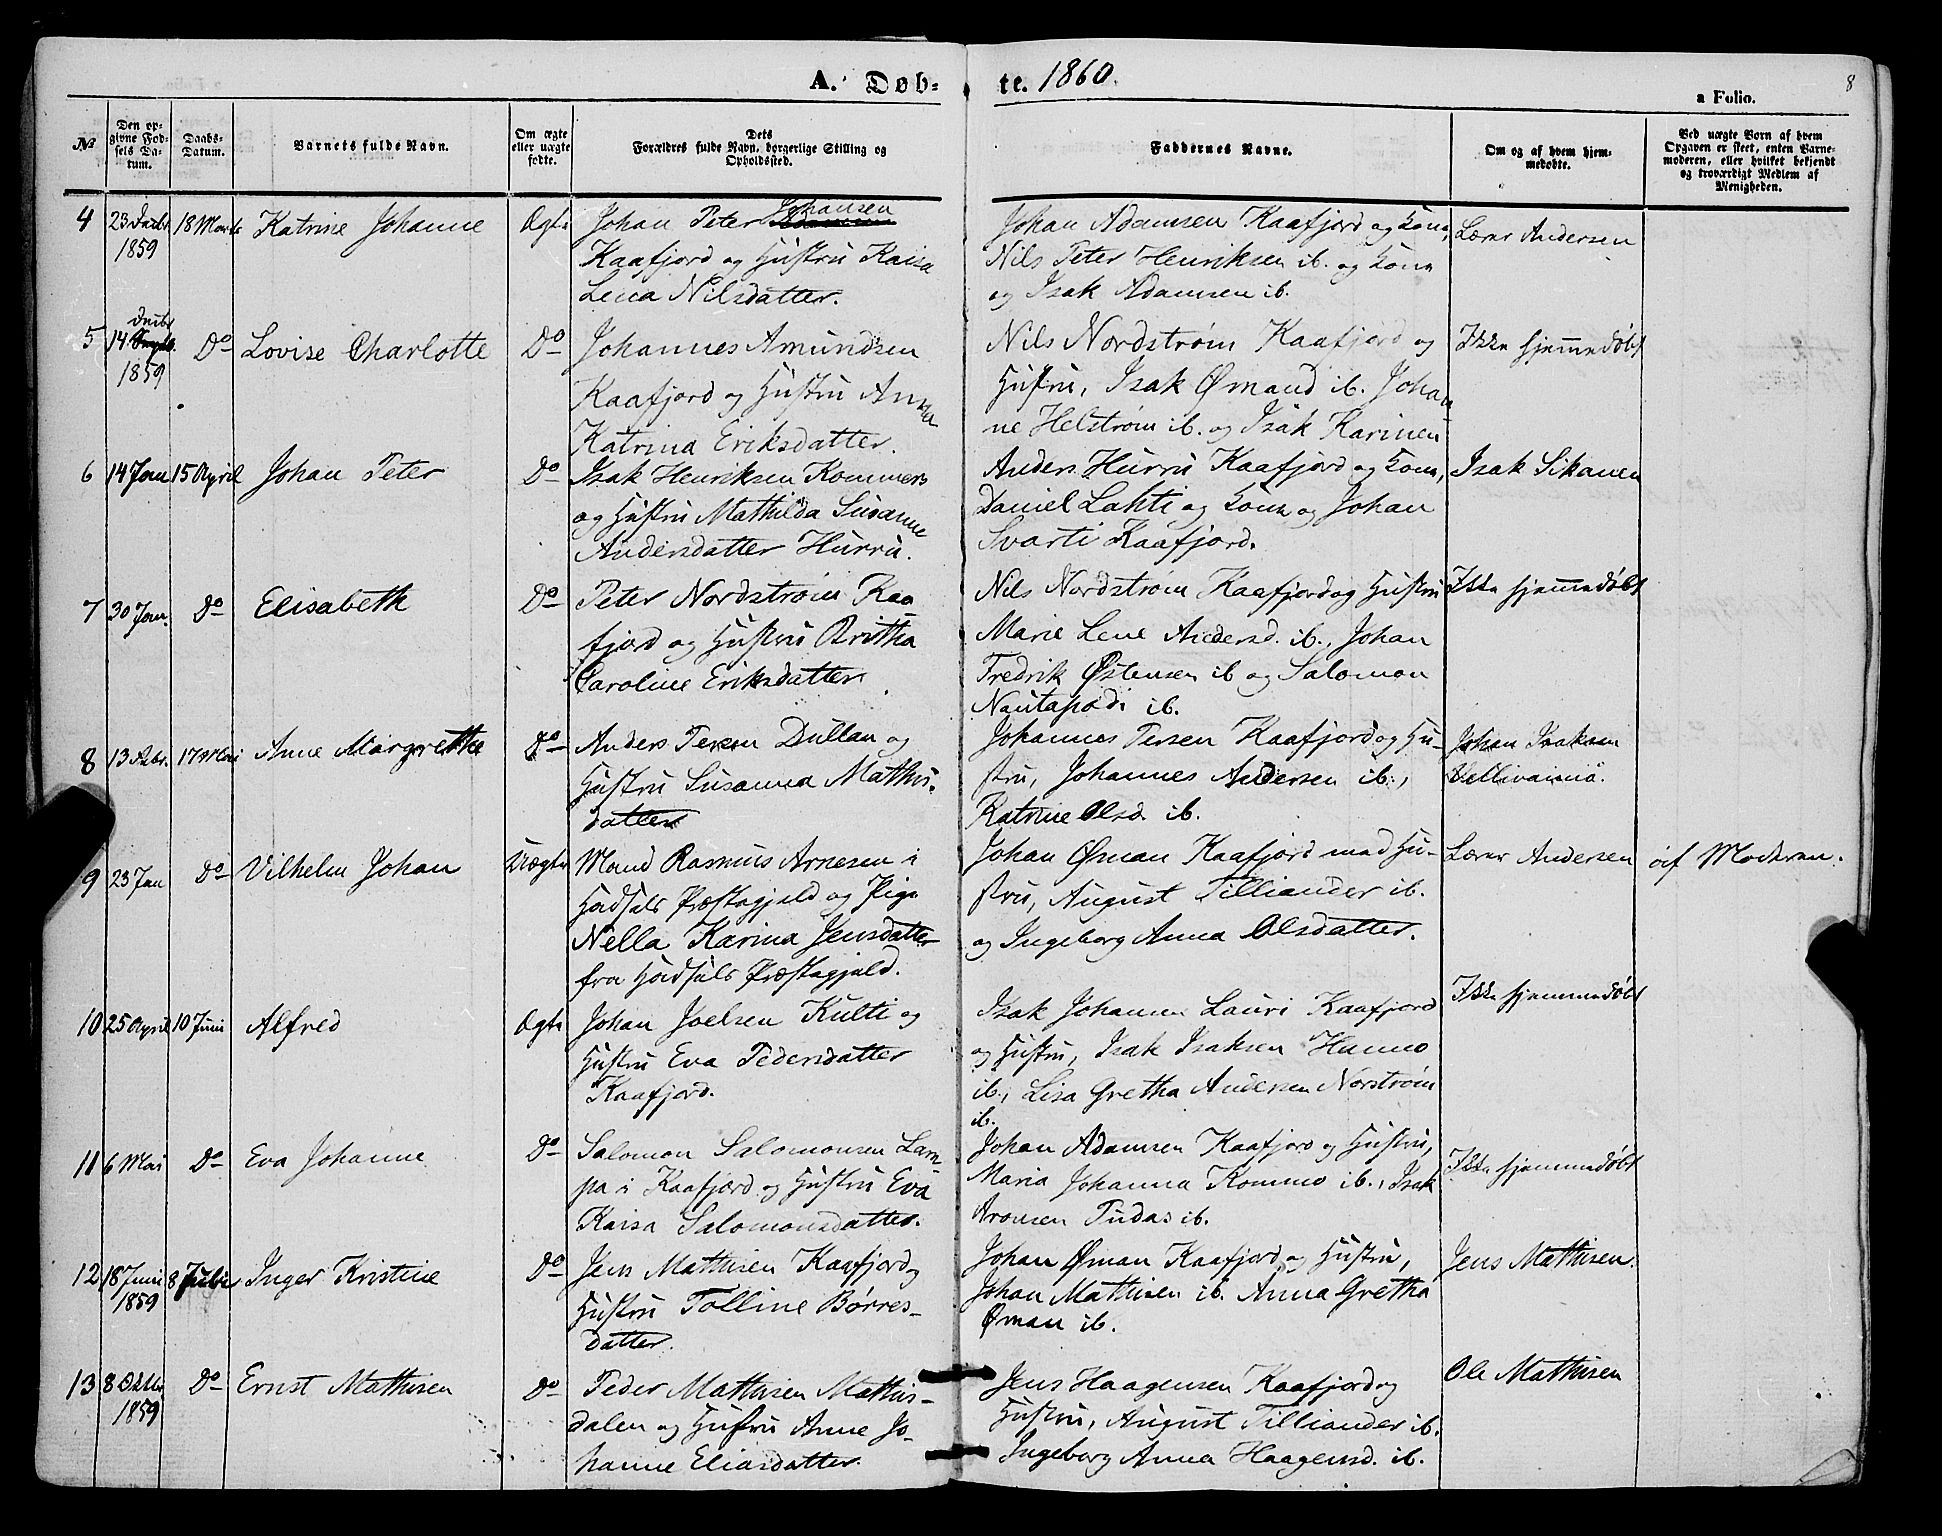 A. Døb-
te. 1860.
8
a Folio.
№
Den op-
givne Fød-
sels Da-
tum.
Daabs-
Datum.
Barnets fulde Navn.
Om ægte
eller uægte
fødte.
Dets
Forældres fulde Navn, borgerlige Stilling og
Opholdssted.
Faddernes Navne.
Om og af hvem hjem-
medøbte.
Ved uægte Børn af hvem
Opgaven er skeet, enten Barne-
moderen, eller hvilket bekjendt
og troværdigt Medlem af
Menigheden.
4
23 Decbr
1859
18 Marts
Katrine Johanne
Ægte
Johan Peter Johansen
Kaafjord og Hustru Kaisa
Lena Nilsdatter.
Johan Adamsen Kaafjord og Kone,
Nils Peter Henriksen ib. og Kone
og Isak Adamsen ib.
Lærer Andersen
5
14 Decbr
1859
Do
Lovise Charlotte
Do
Johannes Amundsen
Kaafjord og Hustru Anna
Katrina Eriksdatter.
Nils Nordstrøm Kaafjord og
Hustru, Isak Ømand ib. Johan
ne Helstrøm ib. og Isak Karinen
Ikke hjemmedøbt
6
14 Jan
15 April
Johan Peter
Do
Isak Henriksen Kommers
og Hustru Mathilda Susanne
Andersdatter Hurru.
Anders Hurru Kaafjord og Kone,
Daniel Lahti og Kone og Johan
Svarti Kaafjord.
Isak Sikanen
7
30 Jan.
Do
Elisabeth
Do
Peter Nordstrøm Kaa-
fjord og Hustru Britha
Caroline Eriksdatter
Nils Nordstrøm Kaafjord og Hustru
Marie Lene Andersd. ib., Johan
Fredrik Østensen ib og Salomon
Nautapodi ib.
Ikke hjemmedøbt
8
13 Febr.
17 Mai
Anne Margrethe
Do
Anders Persen Dullan og
Hustru Susanna Mathis-
datter
Johannes Persen Kaafjord og Hu-
stru, Johannes Andersen ib.,
Katrine Olsd. ib.
Johan Isaksen
9
23 Jan
Do
Vilhelm Johan
Uægte
Mand Rasmus Arnesen i
Hadsels Præstegjeld og Pige
Nella Karina Jensdatter
fra Hadsels Præstegjeld.
Johan Øman Kaafjord med Hu-
stru, August Tilliander ib.
og Ingeborg Anna Olsdatter.
Lærer Andersen
af Moderen.
10
25 April
10 Juni
Alfred
Ægte
Johan Joelsen Kulti og
Hustru Eva Pedersdatter
Kaafjord.
Isak Johansen Lauri Kaafjord
og Hustru, Isak Isaksen Hanno
ib., Lisa Gretha Andersen Norstrøm
ib.
Ikke hjemmedøbt
11
6 Mai
Do
Eva Johanne
Do
Salomon Salomonsen Lam-
pa i Kaafjord og Hustru Eva
Kaisa Salomonsdatter.
Johan Adamsen Kaafjord og Hustru,
Maria Johanna Kommo ib., Isak
Aronsen Tudas ib.
Ikke hjemmedøbt
12
18 Juni
1859
8 Julie
Inger Kristine
Do
Jens Mathisen Kaafjord og
Hustru Tolline Børres-
datter.
Johan Øman Kaafjord og Hustru,
Johan Mathisen ib. Anna Gretha
Øman ib.
Jens Mathisen.
13
8 Oktbr
1859
Do
Ernst Mathisen
Do
Peder Mathisen Mathis-
dalen og Hustru Anne Jo-
hanne Eliasdatter
Jens Haagensen Kaafjord og
Hustru, August Tilliander ib.
Ingeborg Anna Haagensd. ib.
Ole Mathisen